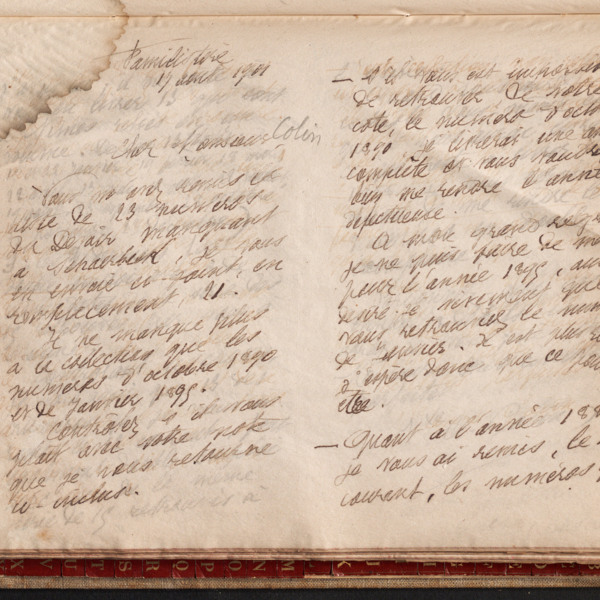 Familistère
17 août 1901
Cher Monsieur Colin
Vous m'avez remis en
note de 23 numéros
du Devoir manquant
à Schaerbeek, je vous
en envoie ci-joint, en
remplacement, 21.
Il ne manque plus
à la collection que les
numéros d'octobre 1890
et de Janvier 1895.
Contrôlez le s'il vous
plait avec votre note
que je vous retourne
ci-inclus.
— S'il vous est impossible
de retrouver de votre
côté, le numéro d'octo
1890 je livrerai une an
complète et vous voudre
bien me rendre l'anné
défectueuse.
A mon grand regre
je ne puis faire de mê
pour l'année 1895, au
désiré-je vivement que
vous retrouviez le num
de Janvier. C'est plus
j'espère donc que ce
— Quant à l'année 188
je vous ai remis, le
courant, les numéros
M N O P Q R S T U V X